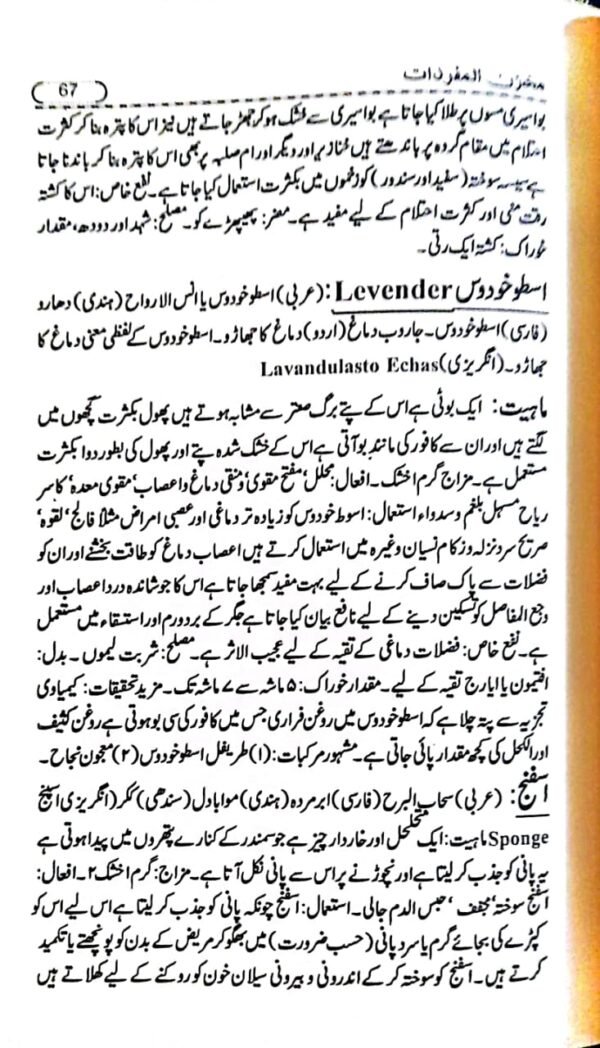 مخزن المفردات
67
بواسیری مسوں پر طلا کیا جاتا ہے بواسیری سے خشک ہو کر جھڑ جاتے ہیں نیز اس کا پترہ بنا کر کثرت
احتلام میں مقام گردہ پر باندھتے ہیں خنازیر اور دیگر اورام صلبہ پر بھی اس کا پترہ بنا کر باندنا جاتا
ہے سیسہ سوختہ (سفید اور سندور) کو زخموں میں بکثرت استعمال کیا جاتا ہے۔ نفع خاص: اس کا کشتہ
رقت منی اور کثرت احتلام کے لیے مفید ہے۔ مضر: پھیپھڑے کو۔ مصلح: شہد اور دودھ، مقدار
خوراک: کشتہ ایک رتی۔
اسطوخودوس Levender: (عربی) اسطوخودوس یا انس الارواح (ہندی) دھارو
(فارسی) اسطوخودوس۔ جاروب دماغ (اردو) دماغ کا جھاڑو۔ اسطوخودوس کے لفظی معنی دماغ کا
جھاڑو۔ (انگریزی) Lavandulasto Echas
ماہیت: ایک بوٹی ہے اس کے پتے برگ صعتر سے مشابہ ہوتے ہیں پھول بکثرت گچھوں میں
لگتے ہیں اور ان سے کافور کی مانند بو آتی ہے اس کے خشک شدہ پتے اور پھول کی بطور دوا بکثرت
مستعمل ہے۔ مزاج گرم ا خشک۔ افعال: محلل، مفتح مقوی و منقی دماغ و اعصاب، مقوی معدہ، کاسر
ریاح مسہل بلغم و سدواء استعمال: اسوط خودوس کو زیادہ تر دماغی اور عصبی امراض مثلاً فالج، لقوہ،
صریح سر دنزلہ و زکام نسیان وغیرہ میں استعمال کرتے ہیں اعصاب دماغ کو طاقت بخشنے اور ان کو
فضلات سے پاک صاف کرنے کے لیے بہت مفید سمجھا جاتا ہے اس کا جوشاندہ درد اعصاب اور
وجع المفاصل کو تسکین دینے کے لیے نافع بیان کیا جاتا ہے جگر کے بردورم اور استسقاء میں مستعمل
ہے۔ نفع خاص: فضلات دماغی کے تقیہ کے لیے عجیب الاثر ہے۔ مصلح: شربت لیموں۔ بدل:
افتیمون یا ایارج تقیہ کے لیے۔ مقدار خوراک: ۵ ماشہ سے ۷ ماشہ تک۔ مزید تحقیقات: کیمیاوی
تجزیہ سے پتہ چلا ہے کہ اسطوخودوس میں روغن فراری جس میں کافور کی سی بو ہوتی ہے روغن کثیف
اور الکحل کی کچھ مقدار پائی جاتی ہے۔ مشہور مرکبات: (۱) طریفل اسطوخودوس (۲) معجون نجاح۔
اسفنج: (عربی) سحاب البرح (فارسی) ابر مردہ (ہندی) موابادل (سندھی) ککر (انگریزی اسپنج
Sponge ماہیت: ایک متخلحل اور خاردار چیز ہے جو سمندر کے کنارے پتھروں میں پیدا ہوتی ہے
یہ پانی کو جذب کر لیتا ہے اور نچوڑنے پر اس سے پانی نکل آتا ہے۔ مزاج: گرم ا خشک ۲۔ افعال:
اسفنج سوختہ، مجفف، حبس الدم جالی۔ استعمال: اسفنج چونکہ پانی کو جذب کر لیتا ہے اس لیے اس کو
کپڑے کی بجائے گرم یا سرد پانی (حسب ضرورت) میں بھگو کر مریض کے بدن کو پونچھتے یا تکمید
کرتے ہیں۔ اسفنج کو سوختہ کر کے اندرونی و بیرونی سیلان خون کو روکنے کے لیے کھلاتے ہیں